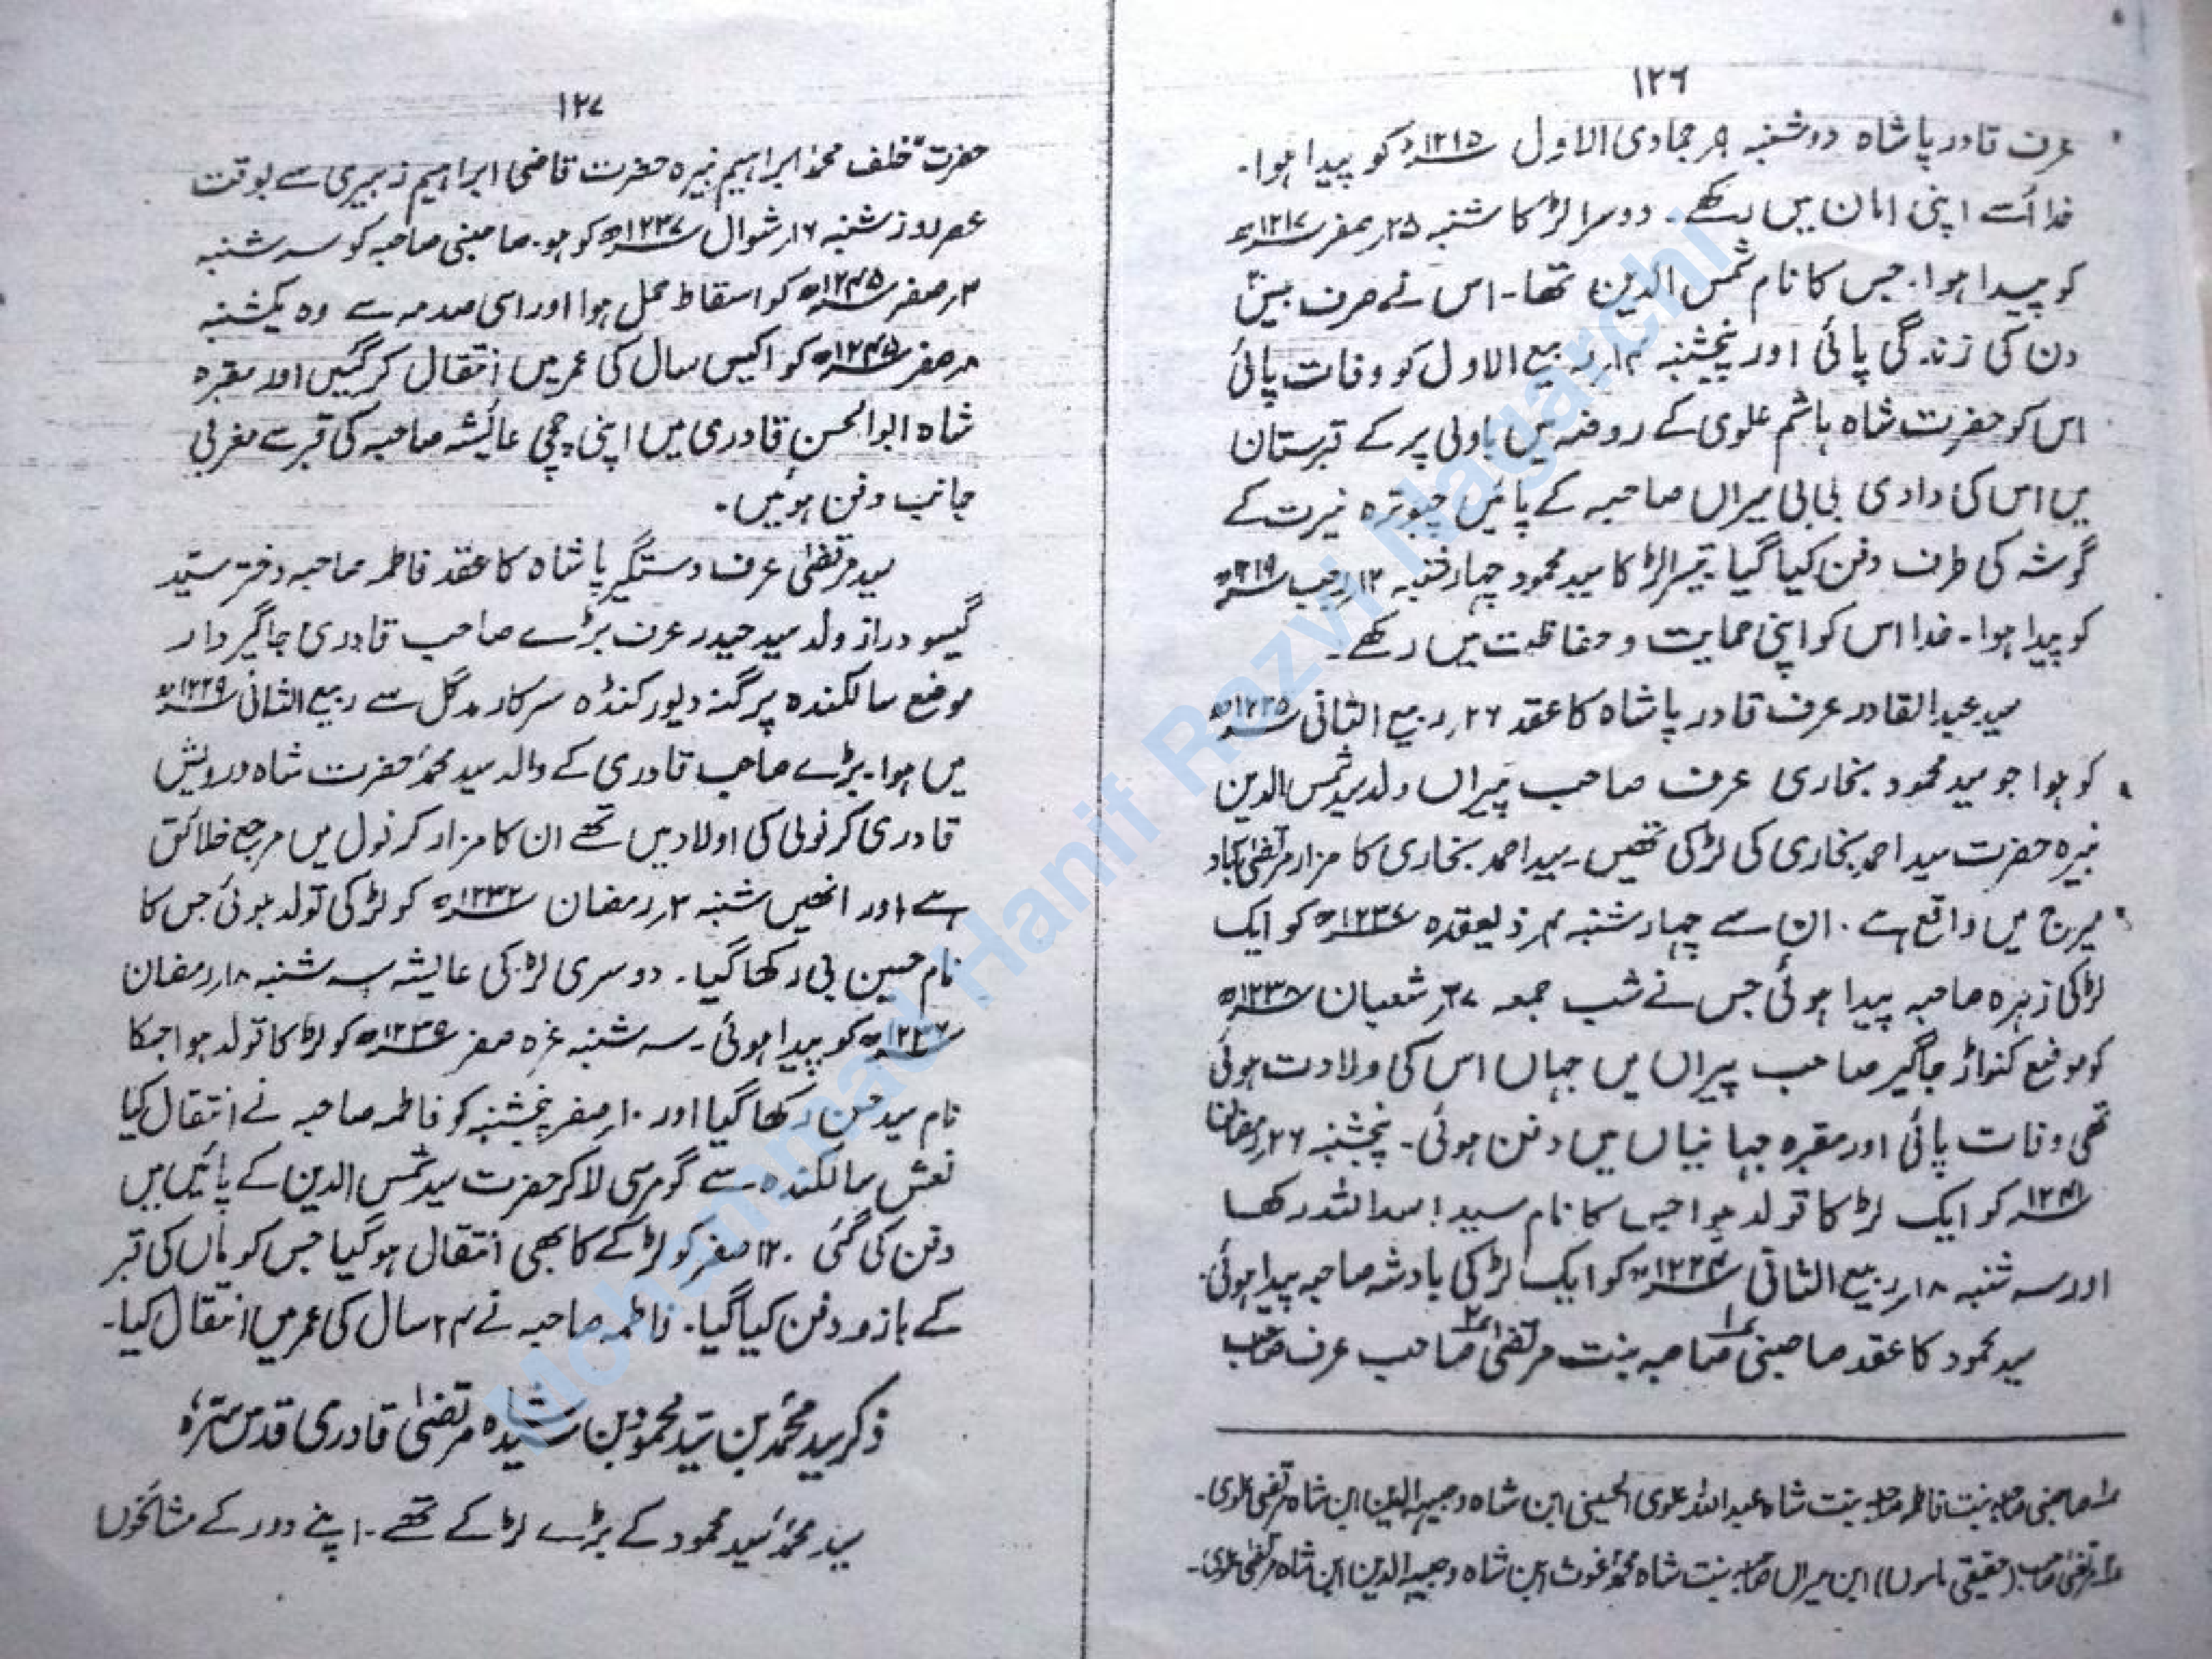 ۱۲۶
عرف قادر پاشاہ دوشنبہ ۹ر جمادی الاول ۱۲۱۵ھ کو پیدا ہوا۔
خدا اُسے اپنی امان میں رکھے۔ دوسرا لڑکا شنبہ ۲۵ر صفر ۱۲۱۷ھ
کو پیدا ہوا۔ جس کا نام شمس الدین تھا۔ اس نے صرف بیس
دن کی زندگی پائی اور پنجشنبہ ۱۴ر ربیع الاول کو وفات پائی
اس کو حضرت شاہ ہاشم علوی کے روضہ میں باولی پر کے قبرستان
میں اس کی دادی بی بی میراں صاحبہ کے پائیں چبوترہ نیرت کے
گوشہ کی طرف دفن کیا گیا۔ تیسرا لڑکا سید محمود چہار شنبہ ۱۲ر رجب ۱۲۱۹ھ
کو پیدا ہوا۔ خدا اس کو اپنی حمایت و حفاظت میں رکھے۔
سید عبدالقادر عرف قادر پاشاہ کا عقد ۲۶ر ربیع الثانی ۱۲۳۵ھ
کو ہوا جو سید محمود بخاری عرف صاحب پیراں ولد سید شمس الدین
نبیرہ حضرت سید احمد بخاری کی لڑکی تھیں۔ سید احمد بخاری کا مزار مرتضیٰ آباد
میرج میں واقع ہے۔ ان سے چہار شنبہ ۴ر ذیعقدہ ۱۲۳۷ھ کو ایک
لڑکی زہرہ صاحبہ پیدا ہوئی جس نے شب جمعہ ۲۷ر شعبان ۱۲۳۸ھ
کو موضع کنواڑ جاگیر صاحب پیراں میں جہاں اس کی ولادت ہوئی
تھی وفات پائی اور مقبرہ جہانیاں میں دفن ہوئی۔ پنجشنبہ ۲۶ر رمضان
۱۲۴۱ھ کو ایک لڑکا تولد ہوا جس کا نام سید اسد اللہ رکھا
اور سہ شنبہ ۱۸ر ربیع الثانی ۱۲۴۴ھ کو ایک لڑکی بادشہ صاحبہ پیدا ہوئی۔
سید محمود کا عقد صاحبنی صاحبہ ۱ بنت مرتضیٰ صاحب ۲ عرف صاحب
۱ صاحبنی صاحبہ بنت فاطمہ صاحبہ بنت شاہ عبداللہ علوی الحسینی ابن شاہ وجیہ الدین ابن شاہ مرتضیٰ علوی۔
۲ مرتضیٰ صاحب (حقیقی ماموں) ابن میراں صاحبہ بنت شاہ محمد غوث ابن شاہ وجیہ الدین ابن شاہ مرتضیٰ علوی۔
۱۲۷
حضرت خلف محمد ابراہیم نبیرہ حضرت قاضی ابراہیم زبیری سے بوقت
عصر روز شنبہ ۱۶ر شوال ۱۲۳۷ھ کو ہو۔ صاحبنی صاحبہ کو سہ شنبہ
۳ر صفر ۱۲۴۵ھ کو اسقاط حمل ہوا اور اسی صدمہ سے وہ یکشنبہ
۸ر صفر ۱۲۴۵ھ کو اکیس سال کی عمر میں انتقال کر گئیں اور مقبرہ
شاہ ابوالحسن قادری میں اپنی چچی عائیشہ صاحبہ کی قبر سے مغربی
جانب دفن ہوئیں۔
سید مرتضیٰ عرف دستگیر پاشاہ کا عقد فاطمہ صاحبہ دختر سید
گیسو دراز ولد سید حیدر عرف بڑے صاحب قادری جاگیردار
موضع سالکندہ پرگنہ دیورکنڈہ سرکار مدگل سے ربیع الثانی ۱۲۲۹ھ
میں ہوا۔ بڑے صاحب قادری کے والد سید محمد حضرت شاہ درویش
قادری کرنولی کی اولاد میں تھے ان کا مزار کرنول میں مرجع خلائق
ہے اور انھیں شنبہ ۲ر رمضان ۱۲۳۲ھ کو لڑکی تولد ہوئی جس کا
نام حسین بی رکھا گیا۔ دوسری لڑکی عایشہ سہ شنبہ ۱۸ر رمضان
۱۲۳۷ھ کو پیدا ہوئی۔ سہ شنبہ غرہ صفر ۱۲۳۹ھ کو لڑکا تولد ہوا جسکا
نام سید حسن رکھا گیا اور ۱۰ر صفر پنجشنبہ کو فاطمہ صاحبہ نے انتقال کیا
نعش سالکندہ سے گومرسی لاکر حضرت سید شمس الدین کے پائیں میں
دفن کی گئی۔ ۱۲ صفر کو لڑکے کا بھی انتقال ہو گیا جس کو ماں کی قبر
کے بازو دفن کیا گیا۔ فاطمہ صاحبہ نے ۲۴ سال کی عمر میں انتقال کیا۔
ذکر سید محمد بن سید محمود بن سید شاہ مرتضیٰ قادری قدس سرہٗ
سید محمد، سید محمود کے بڑے لڑکے تھے۔ اپنے دور کے مشائخوں
Mohammad Hanif Razvi Nagarchi